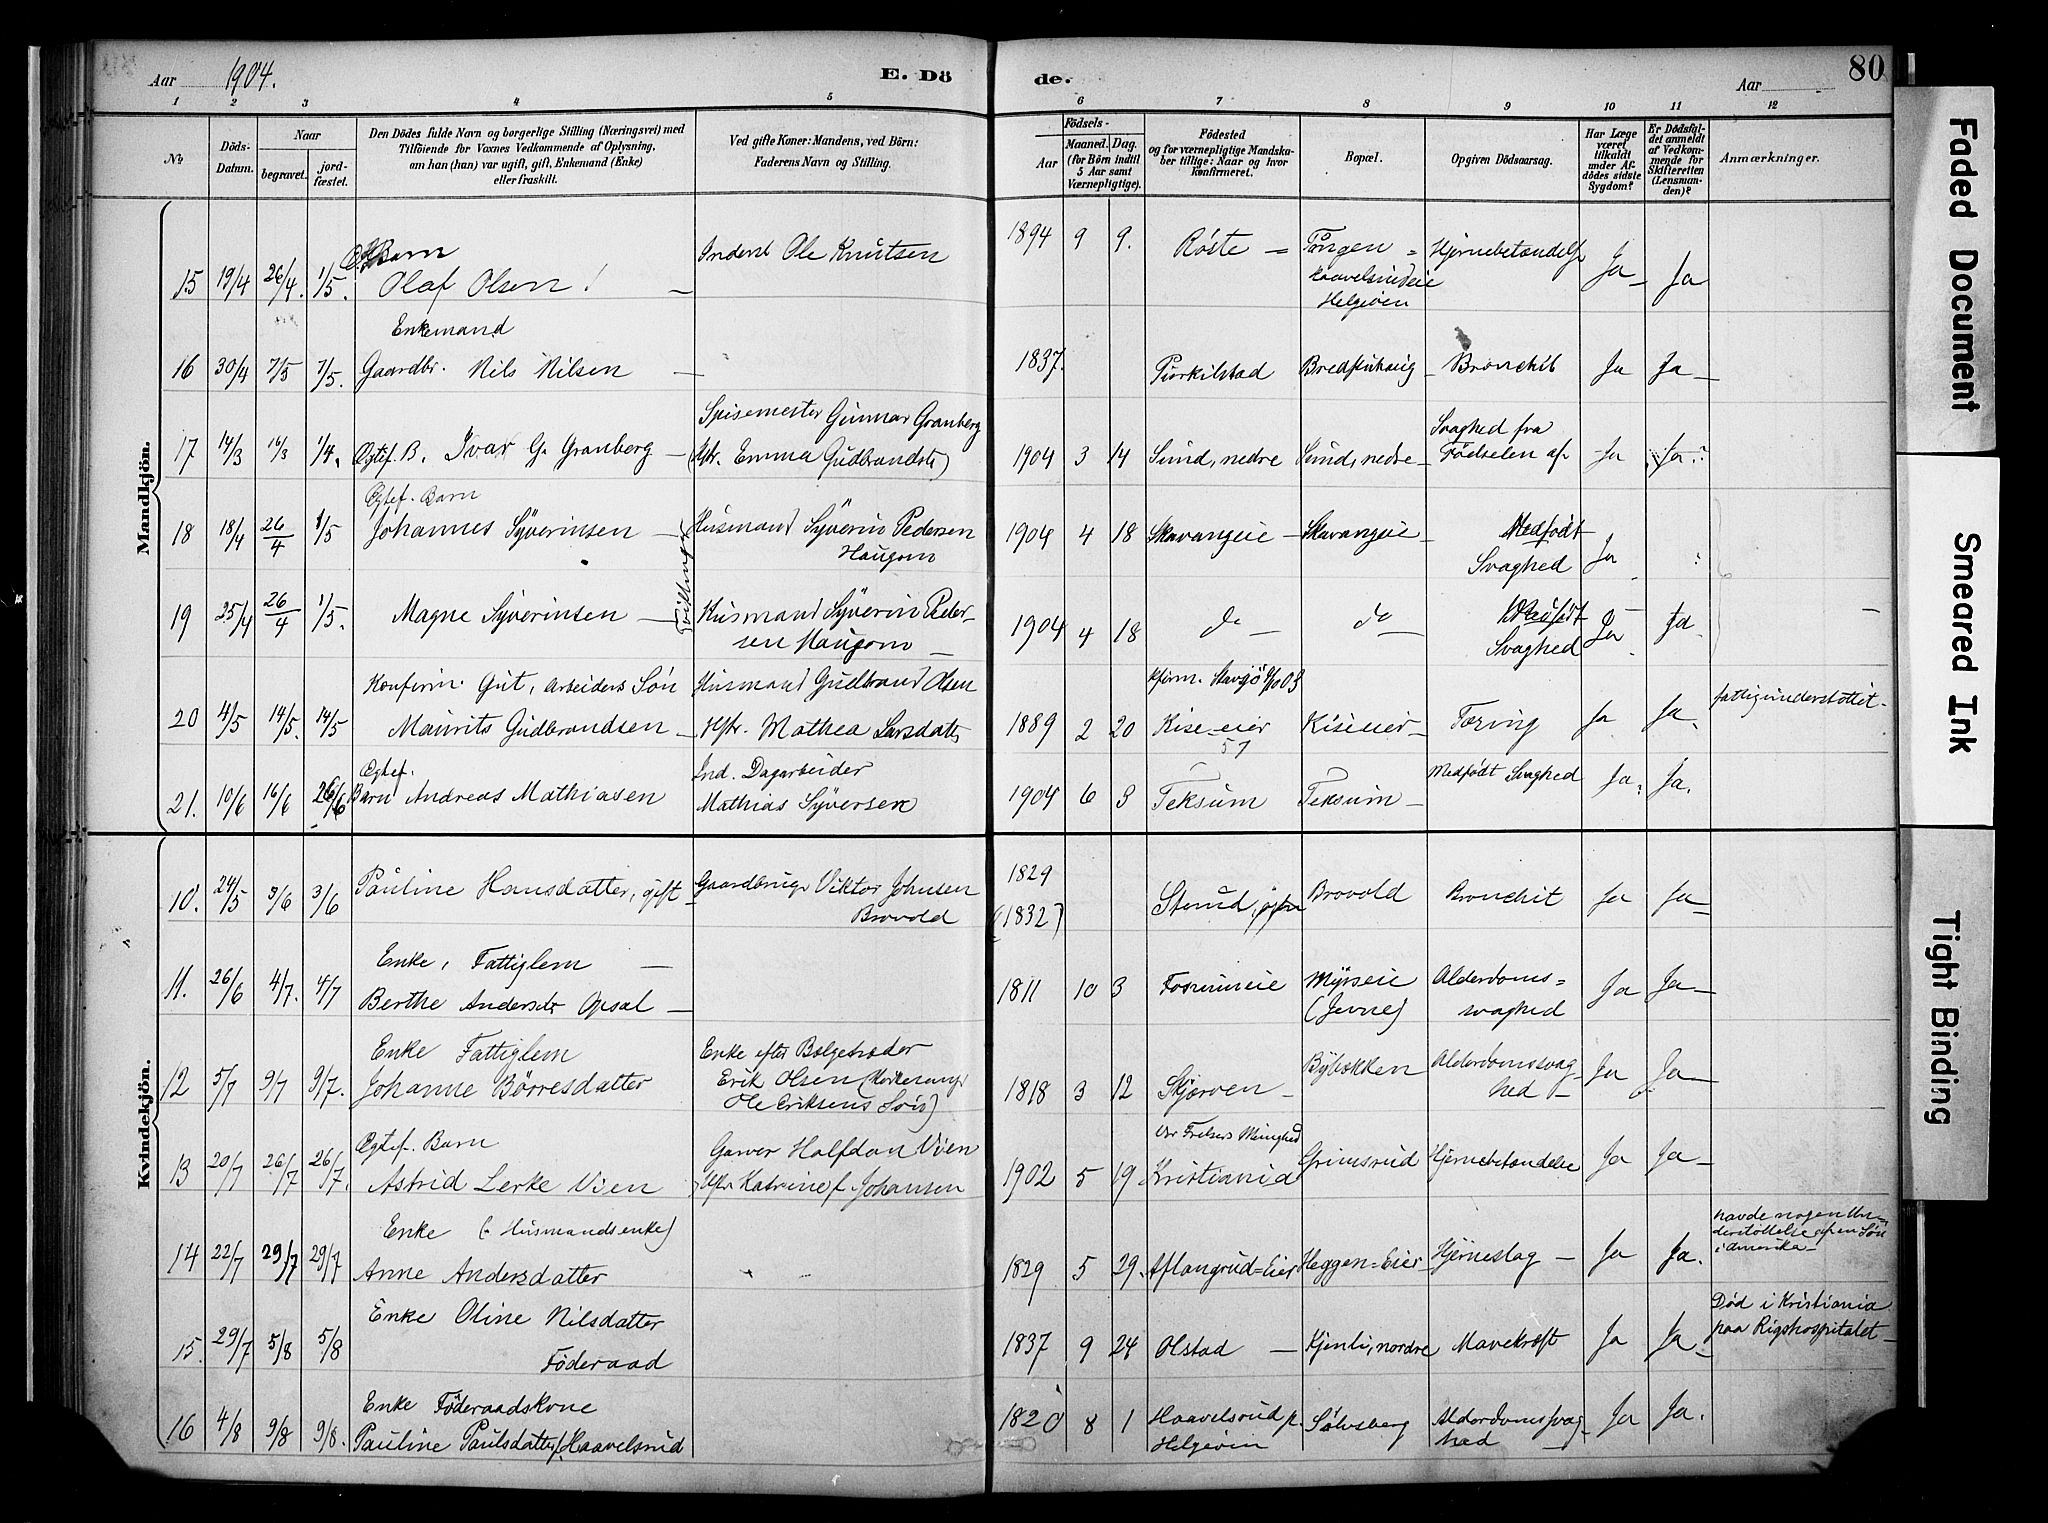 Aar 1904.
E. Dö
de.
Aar
80
1 2 3 4 5 6 7 8 9 10 11 12
No
Döds-Datum.
Naar
begravet.
jord-fæstet.
Den Dödes fulde Navn og borgerlige Stilling (Næringsvei) med
Tilföiende for Voxnes Vedkommende af Oplysning,
om han (hun) var ugift, gift, Enkemand (Enke)
eller fraskilt.
Ved gifte Koner: Mandens, ved Börn:
Faderens Navn og Stilling.
Födsels-
Aar
Maaned. Dag.
(for Börn indtil
5 Aar samt
Værnepligtige).
Födested
og for værnepligtige Mandska-
ber tillige: Naar og hvor
konfirmeret.
Bopæl.
Opgiven Dödsaarsag.
Har Læge
været
tilkaldt
under Af-
dödes sidste
Sygdom?
Er Dödsfal-
det anmeldt
af Vedkom-
mende for
Skifteretten
(Lensman-
den)?
Anmærkninger.
Mandkjön.
15 19/4 26/4. 1/5. Barn
Olaf Olsen
Inderst Ole Knutsen
1894 9 9. Röste Tongen
Haavelsrudeie
Helgøen
Hjernebetændelse Ja Ja
Enkemand
16 30/4 7/5 7/5. Gaardbr. Nils Nilsen
1837. Bronchit Ja Ja
17 14/3 16/3 1/4. Ægtef. B. Ivar G. Granberg
Spisemester Gunnar Granberg
Hstr. Emma Gudbrandsd.
1904 3 14 Sund, nedre Sund, nedre Svaghed fra
Fødselen af Ja Ja
Ægtef. Barn
18 18/4 26/4 1/5 Johannes Syverinsen
Tvillinger
Husmand Syverin Pedersen
Haugom
1904 4 18 Skavangeie Skavangeie Medfødt
Svaghed Ja
19 25/4 26/4 1/5. Magne Syverinsen
Husmand Syverin Peder-
sen Haugom
1904 4 18 do do Medfødt
Svaghed Ja Ja
Konfirm. Gut, arbeiders Søn
20 4/5 14/5. 14/5 Maurits Gudbrandsen
Husmand Gudbrand Olsen
Hstr. Mathea Larsdatter
1889 2 20 Kise-eier
57
Kiseeier Tæring Ja Ja fattigunderstöttet.
Ægtef.
21. 10/6 16/6 26/6 Barn Andreas Mathiasen
Ind. Dagarbeider
Mathias Syversen
1904 6 3 Teksum Teksum Medfødt Svaghed Ja. Ja.
Kvindekjön.
10. 24/5 3/6 3/6 Pauline Hansdatter, gift
Gaardbruger Viktor Johnsen
Brovold
1829
(1832)
Brovold Bronchit Ja Ja
11. 26/6 4/7. 4/7 Enke, Fattiglem
Berthe Andersdr Opsal
1811 10 3 Myrseie
(Jevne)
Alderdoms=
svaghed Ja Ja
12 5/7 9/7 9/7. Enke Fattiglem
Johanne Börresdatter
Enke efter Bælgetræder
Erik Olsen
Ole Eriksens
1818 3 12 Skjerven Bybækken Alderdomssvag
hed Ja Ja
13 20/7 26/7 26/7. Ægtef. Barn
Astrid Lerke Vien
Garver Halfdan Vien
Hstr Katrine f. Johansen
1902 5 19 Vor Frelsers Menighed
Kristiania
Grimsrud Hjernebetændelse Ja Ja
14 22/7 29/7 29/7 Enke (Husmandsenke)
Anne Andersdatter
1829 5 29. Aflangrud=Eier Heggen=Eier Hjerneslag Ja Ja.
havde nogen Un-
derstöttelse af en Søn
i Amerika
15. 29/7 5/8 5/8 Enke Oline Nilsdatter
Föderaad
1837 9 24 Olstad Kjenli, nordre Mavekræft Ja Ja.
Død i Kristiania
paa Rigshospitalet
16 4/8 9/8 9/8. Enke Föderaadskone
Pauline Paulsdatter f. Haavelsrud
1820 8 1 Haavelsrud p.
Helgøen
Sølvsberg Alderdomssvag-
hed Ja Ja.
Faded Document
Smeared Ink
Tight Binding